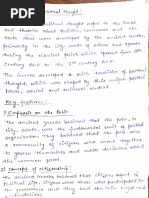 political thought:
political thought refers to the ideas
and theories about politics, governance, and the
state that were developed by the ancient Greeks,
primarily in the city-states of Athens and Sparta
during the classical period which spanned from 5th
Century BCE to the 4th century BCE.
The Greeks developed a rich tradition of political
thought, which was shaped by their
social and cultural context
Key features:
1) Emphasis on the Polis
The ancient greeks believed that the polis, or
city-state, was the fundamental unit of political
organization. The polis was
a community of citizens who were
to govern themselves and make decisions about
the common good.
2) Concept of citizenship:
The ancient Greeks believed that citizens
political life. Citizens were
the governance and they had certain rights
and responsibilities.